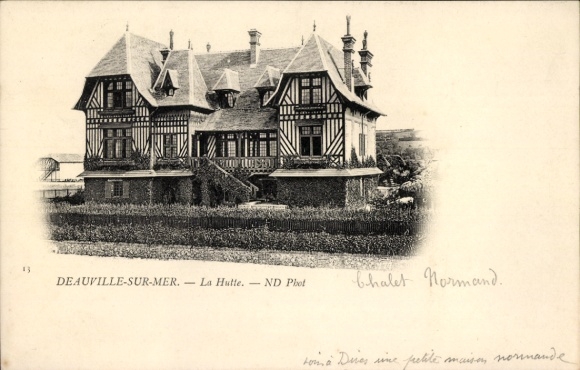 13
DEAUVILLE-SUR-MER. — La Hutte. — ND Phot
Chalet Normand.
à une petite maison normande